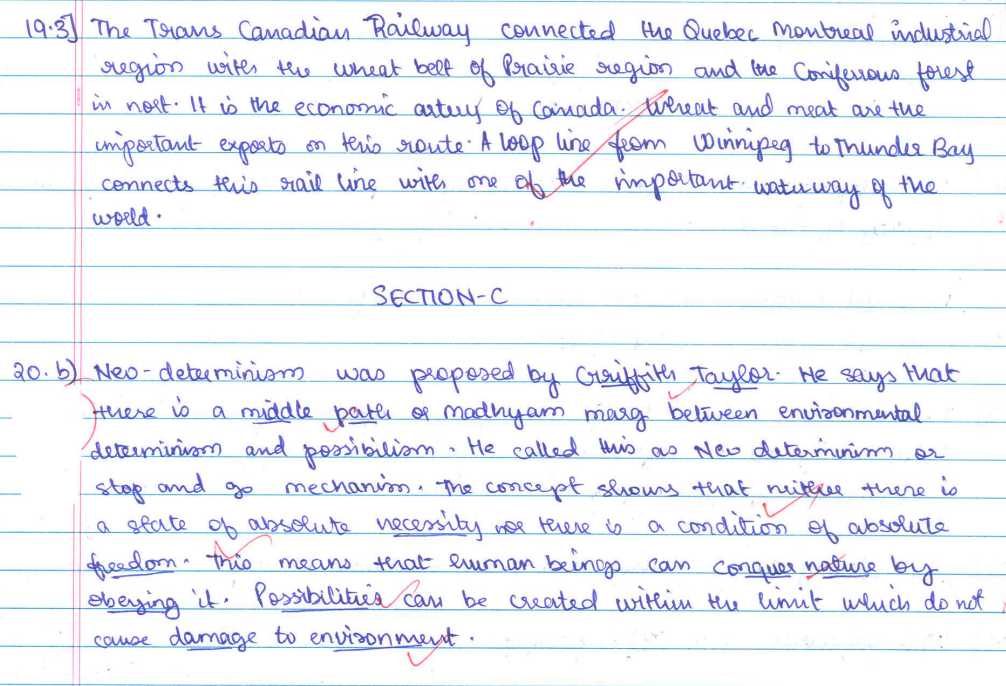 19.3] The Trans Canadian Railway connected the Quebec Montreal industrial
region with the wheat belt of Prairie region and the Coniferous forest
in nort. It is the economic artery of Canada. Wheat and meat are the
important exports on this route. A loop line from Winnipeg to Thunder Bay
connects this rail line with one of the important waterway of the
world.
SECTION-C
20. b) Neo-determinism was proposed by Griffith Taylor. He says that
there is a middle path or madhyam marg between environmental
determinism and possibilism. He called this as Neo determinism or
stop and go mechanism. The concept shows that neither there is
a state of absolute necessity nor there is a condition of absolute
freedom. This means that human beings can conquer nature by
obeying it. Possibilities can be created within the limit which do not
cause damage to environment.